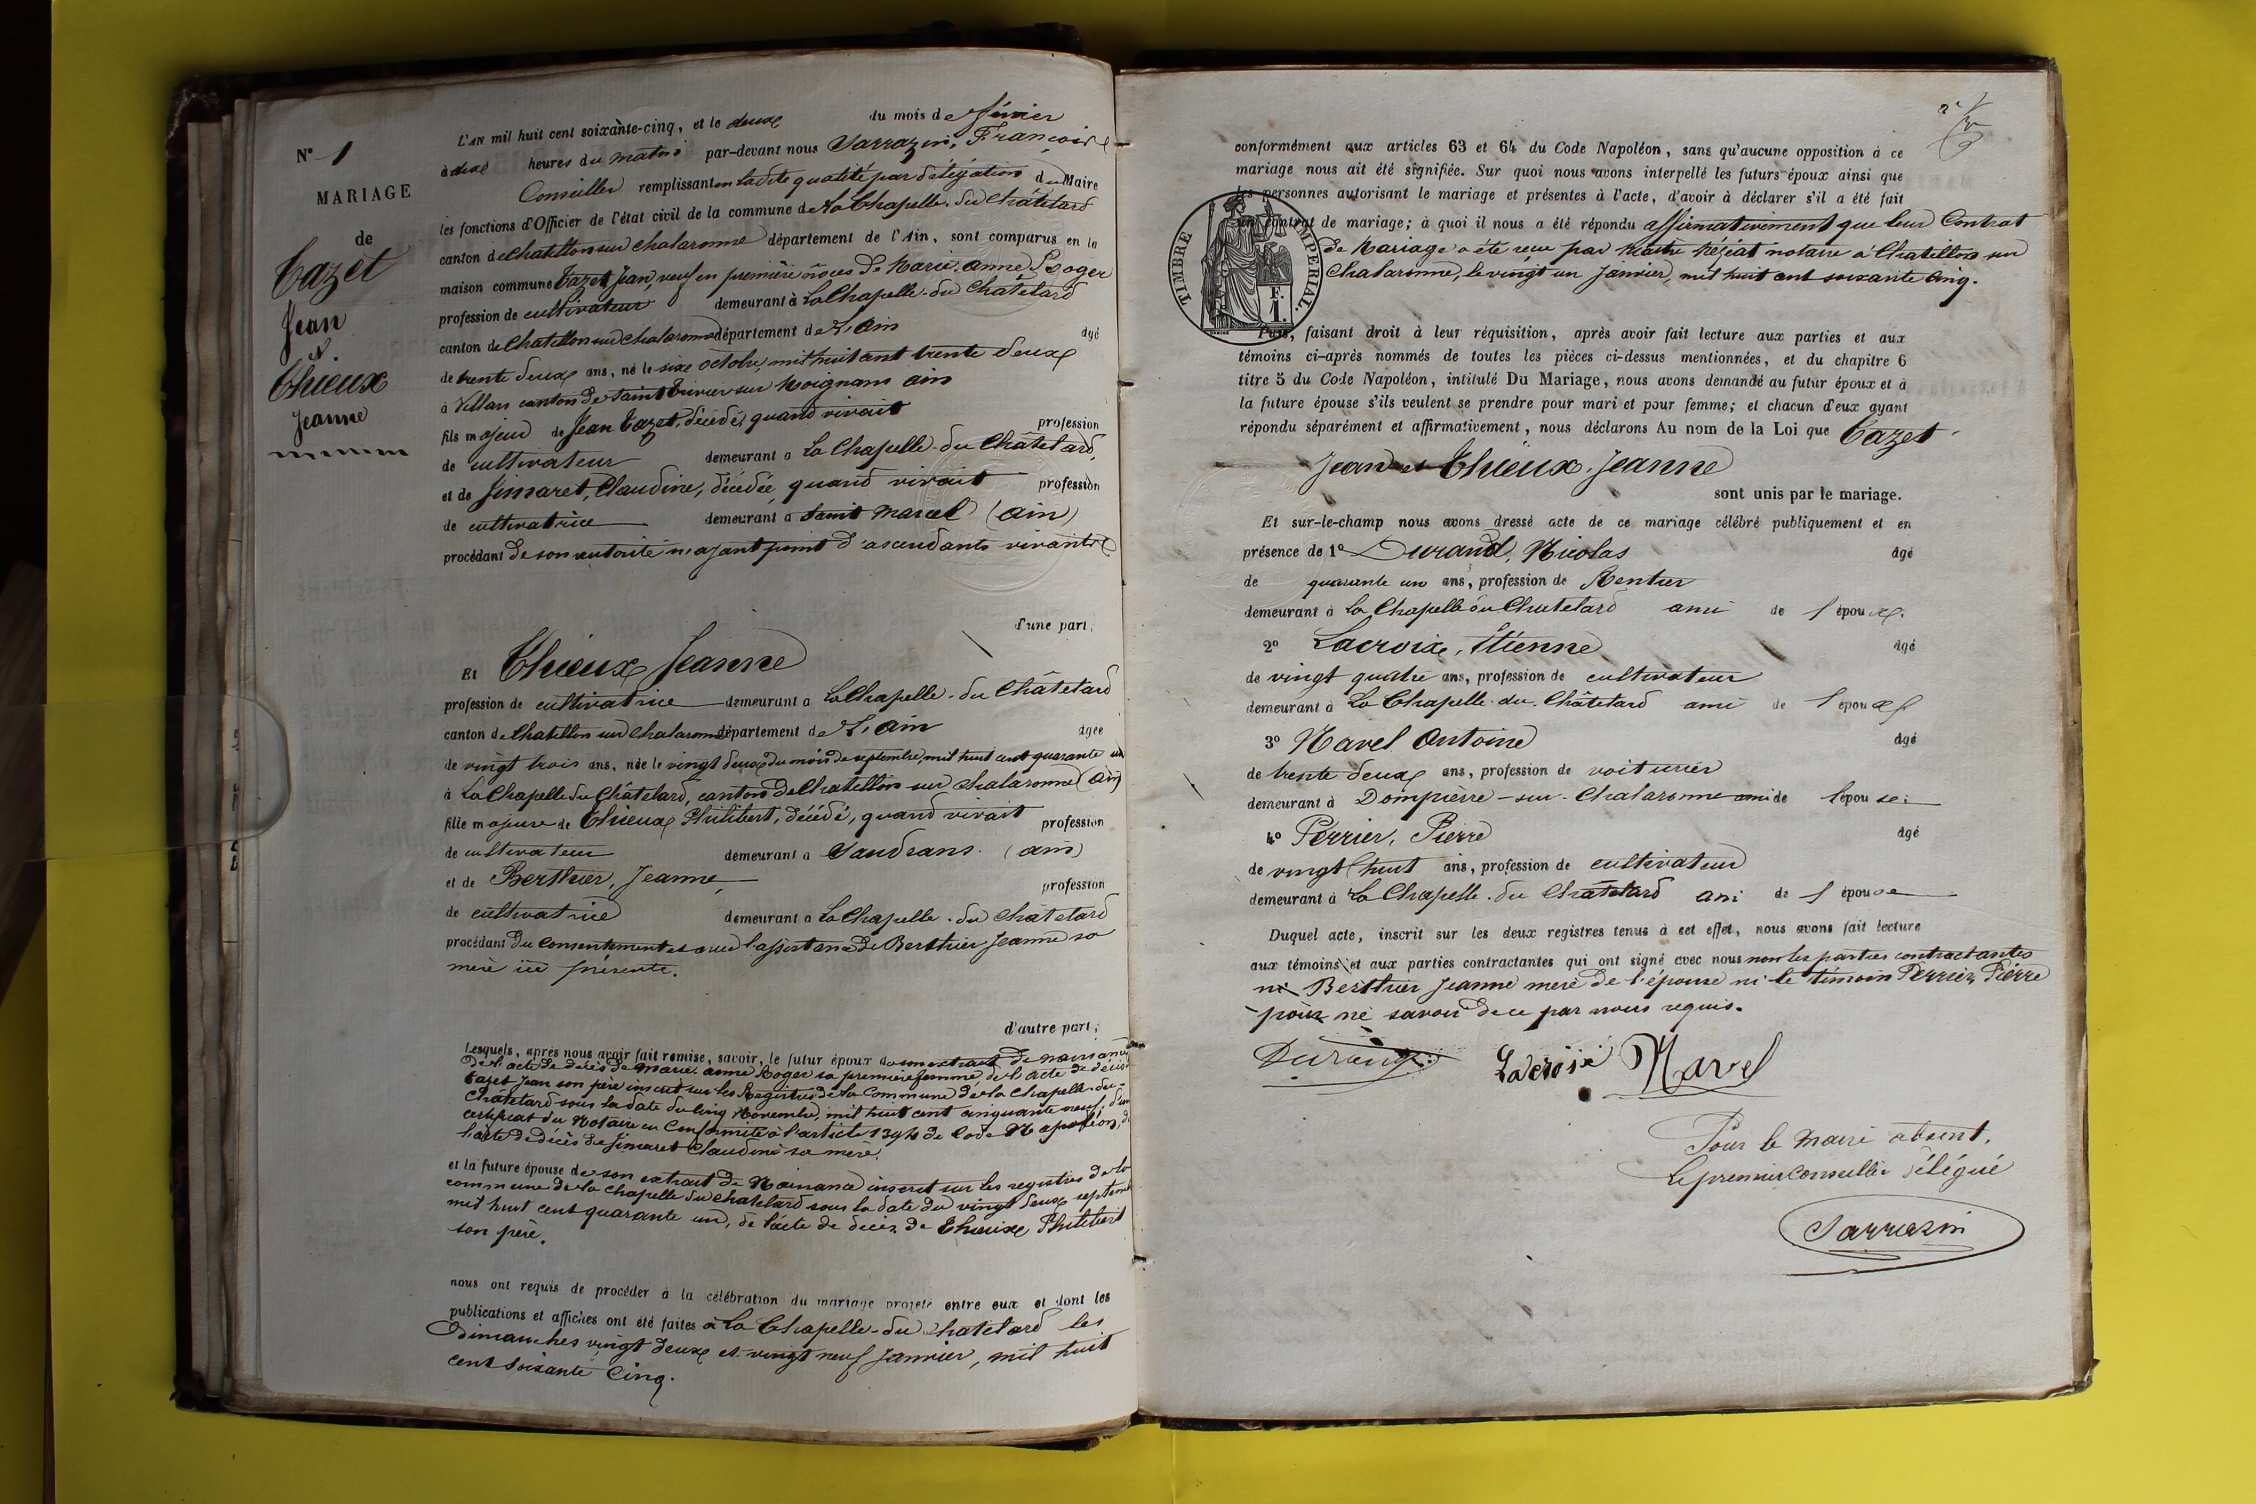 N° 1
MARIAGE
de
Tazet
Jean
et
Thieux
Jeanne
L'AN mil huit cent soixante-cinq, et le deux du mois de février
à dix heures du matin par-devant nous Sarrazin, François
Conseiller remplissant en ladite qualité par délégation du Maire
les fonctions d'Officier de l'état civil de la commune de La Chapelle-du Châtelard
canton de Chatillon sur Chalaronne département de l'Ain, sont comparus en la
maison commune Tazet Jean, veuf en première noces de Marie-anne Roger
profession de cultivateur demeurant à La Chapelle-du Chatelard
canton de Chatillon sur Chalaronne département de L'Ain âgé
de trente deux ans, né le six octobre mil huit cent trente deux
à Villars canton de Saint Trivier sur Moignans ain
fils majeur de Jean Tazet, décédé, quand vivait profession
de cultivateur demeurant à La Chapelle-du Châtelard,
et de Jimaret, Claudine, décédée quand vivait profession
de cultivatrice demeurant à Saint Marcel (ain)
procédant de son autorité n'ayant point d'ascendants vivants
d'une part,
Et Thieux Jeanne
profession de cultivatrice demeurant à La Chapelle-du Châtelard
canton de Chatillon sur Chalaronne département de L'Ain âgée
de vingt trois ans, née le vingt deux du mois de septembre, mil huit cent quarante un
à La Chapelle du Châtelard, canton de Chatillon sur Chalaronne (ain)
fille majeure de Thieux Philibert, décédé, quand vivait profession
de cultivateur demeurant à Sandrans (ain)
et de Berthier, Jeanne, profession
de cultivatrice demeurant à La Chapelle-du Châtelard
procédant du consentement et avec l'assistance de Berthier Jeanne sa
mère ici présente.
d'autre part,
Lesquels, après nous avoir fait remise, savoir, le futur époux de son extrait de naissance
De l'acte de décès de Marie anne Roger sa première femme, de l'acte de décès
Tazet Jean son père inscrit sur les Registres de la Commune de la Chapelle-du-
Châtelard sous la date du cinq Novembre, mil huit cent cinquante neuf, d'un
certificat du Notaire en Conformité à l'article 1394 de Code Napoléon, de
l'acte de décès de Jimaret Claudine sa mère.
et la future épouse de son extrait de Naissance inscrit sur les registres de la
commune de la Chapelle du Chatelard sous la date du vingt deux septembre
mil huit cent quarante un, de l'acte de décès de Thieux Philibert
son père.
nous ont requis de procéder à la célébration du mariage projeté entre eux et dont les
publications et affiches ont été faites à La Chapelle-du Chatelard les
Dimanches vingt deux et vingt neuf Janvier, mil huit
cent soixante Cinq.
2e
conformément aux articles 63 et 64 du Code Napoléon, sans qu'aucune opposition à ce
mariage nous ait été signifiée. Sur quoi nous avons interpellé les futurs époux ainsi que
les personnes autorisant le mariage et présentes à l'acte, d'avoir à déclarer s'il a été fait
un contrat de mariage; à quoi il nous a été répondu affirmativement que leur Contrat
de Mariage a été reçu par Maître notaire à Chatillon sur
Chalaronne, le vingt un Janvier, mil huit cent soixante Cinq.
TIMBRE IMPERIAL.
F.
1.
Puis, faisant droit à leur réquisition, après avoir fait lecture aux parties et aux
témoins ci-après nommés de toutes les pièces ci-dessus mentionnées, et du chapitre 6
titre 5 du Code Napoléon, intitulé Du Mariage, nous avons demandé au futur époux et à
la future épouse s'ils veulent se prendre pour mari et pour femme; et chacun d'eux ayant
répondu séparément et affirmativement, nous déclarons Au nom de la Loi que Tazet
Jean et Thieux, Jeanne
sont unis par le mariage.
Et sur-le-champ nous avons dressé acte de ce mariage célébré publiquement et en
présence de 1° Durand, Nicolas âgé
de quarante un ans, profession de Rentier
demeurant à La Chapelle du Chatelard ami de l'époux.
2° Lacroix, Etienne âgé
de vingt quatre ans, profession de cultivateur
demeurant à La Chapelle-du-Châtelard ami de l'époux
3° Navel Antoine âgé
de trente deux ans, profession de voiturier
demeurant à Dompierre-sur-Chalaronne ami de l'épouse.
4° Perrier, Pierre âgé
de vingt huit ans, profession de cultivateur
demeurant à La Chapelle-du Châtelard ami de l'épouse
Duquel acte, inscrit sur les deux registres tenus à cet effet, nous avons fait lecture
aux témoins et aux parties contractantes qui ont signé avec nous non les parties contractantes
ni Berthier Jeanne mère de l'épouse ni le témoin Perrier, Pierre
pour ne savoir de ce par nous requis.
Durand Lacroix Navel
Pour le Maire absent,
Le premier Conseiller délégué
Sarrazin